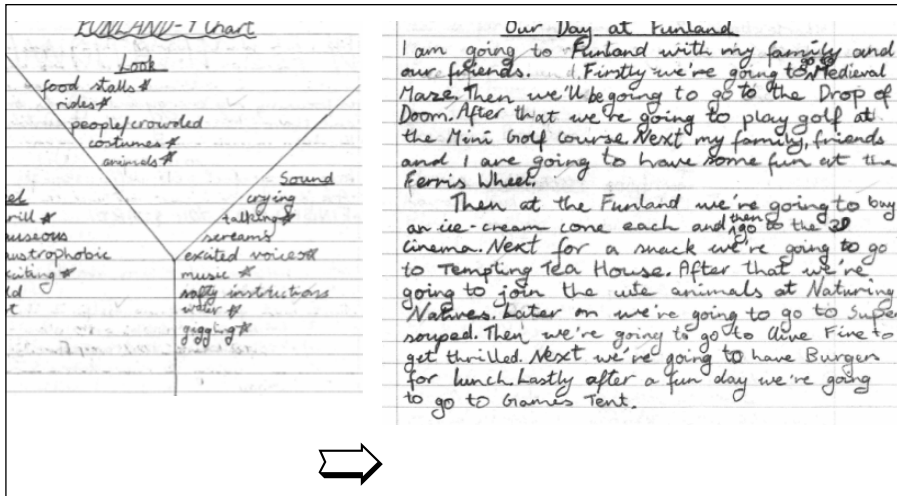 FUNLAND-Y Chart
Look
food stalls *
rides *
people/crowded
costumes *
animals *
Sound
crying
talking *
screams
excited voices *
music *
safty instructions
water *
giggling *
el
rill *
auseous
ustrophobic
citing *
ld
t
Our Day at Funland
I am going to Funland with my family and
our friends. Firstly we're going to go to Medieval
Maze. Then we'll be going to go to the Drop of
Doom. After that we're going to play golf at
the Mini Golf course. Next my family, friends
and I are going to have some fun at the
Ferris Wheel.
Then at the Funland we're going to buy
an ice-cream cone each and then go to the 3D
cinema. Next for a snack we're going to go
to Tempting Tea House. After that we're
going to join the ute animals at Naturing
Natures. Later on we're going to go to Super
souped. Then we're going to go to Five to
get thrilled. Next we're going to have Burgers
for lunch. Lastly after a fun day we're going
to go to Games Tent.